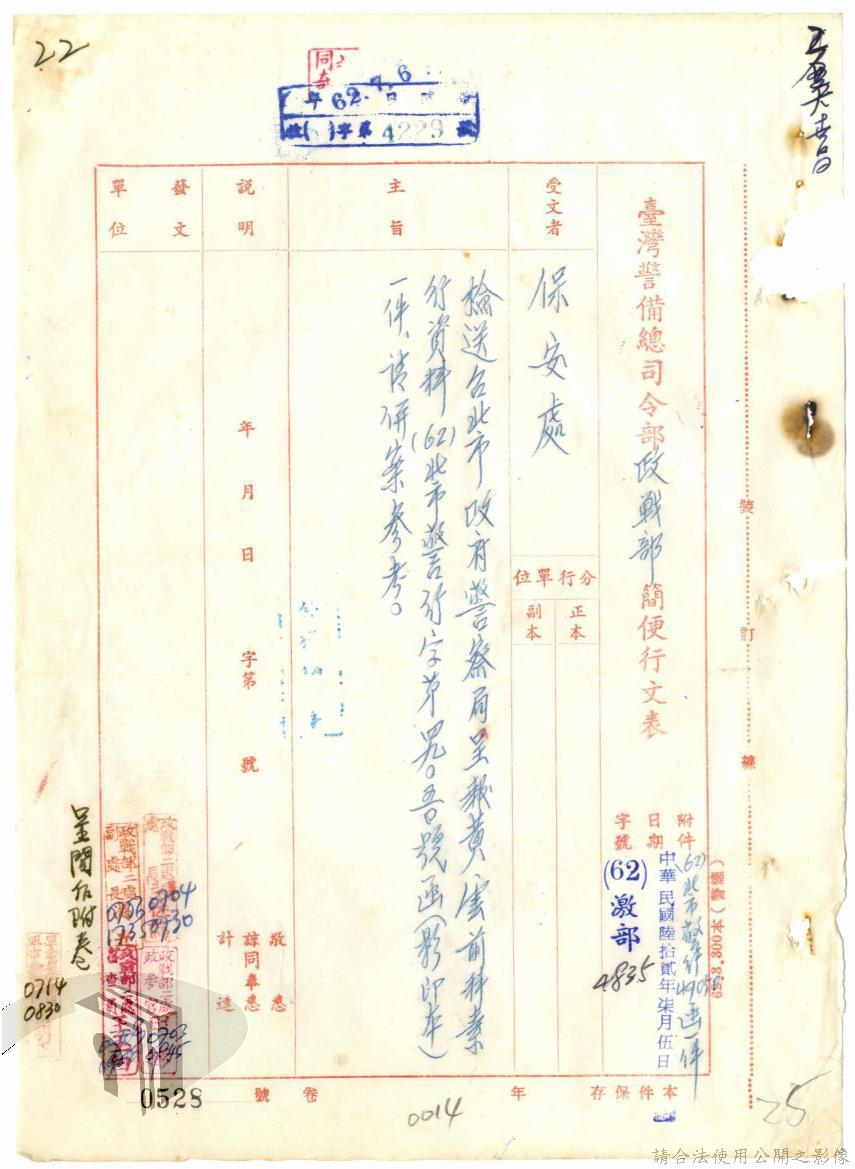 22
同
年62.7.6
字第4229號
臺灣警備總司令部政戰部簡便行文表
附件
(62)北市警行4905函一件
日期
中華民國陸拾貳年柒月伍日
字號
(62)激部
4835
受文者
保安處
分行單位
正本
副本
主旨
檢送台北市政府警察局呈報黃雲前科素
行資料(62)北市警行字第四九〇五號函(影印本)
一件、請併案參考。
說明
年 月 日 字第 號
敬悉
諒同奉悉
計達
發文
單位
0704
0930
政戰第二處
副處長
0714
0830
呈閱后附卷
本件保存 年
卷 號
0014
0528
25
裝 訂 線
請合法使用公開之影像